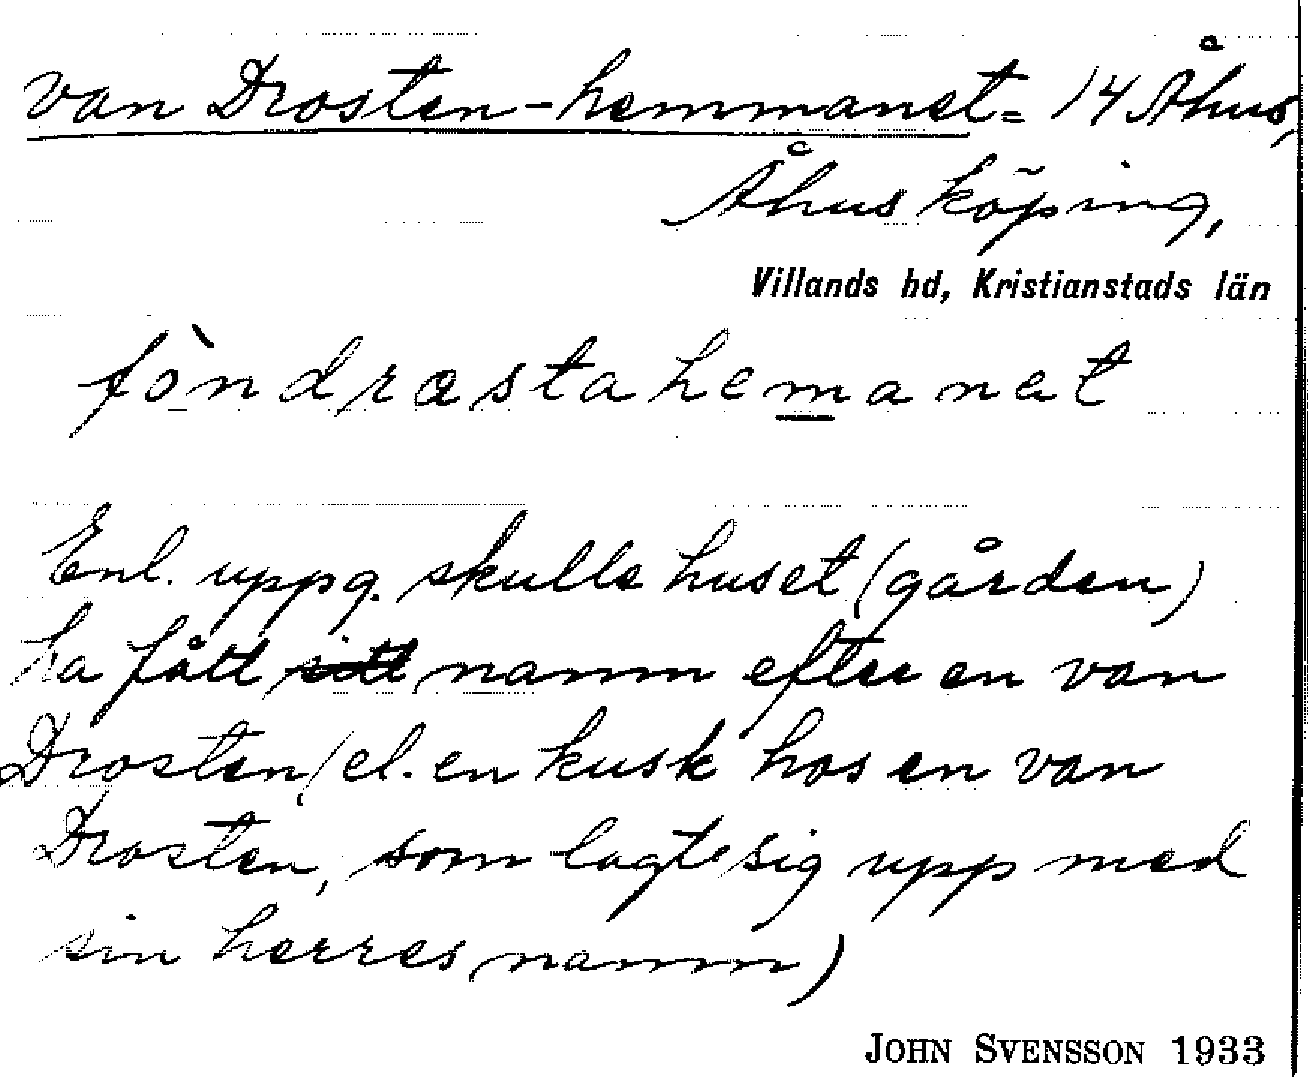 van Drosten-hemmanet = 14 Åhus,
Åhus köping,
Villands hd, Kristianstads län
fòndrastahemanat
Enl. uppg. skulle huset (gården)
ha fått namn efter en van
Drosten (el. en kusk hos en van
Drosten, som lagt sig upp med
sin herres namn)
JOHN SVENSSON 1933